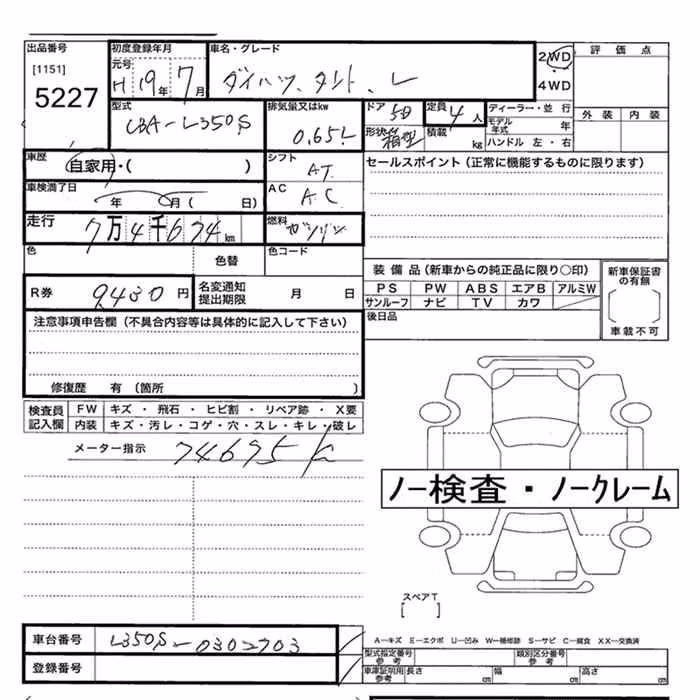 出品番号 初度登録年月 車名・グレード 2WD 評価点
[1151] 元号 H 19年 7月 ダイハツ、タント、L 4WD
5227 型式 排気量又はkw ドア 5D 定員 4人 ディーラー・並行 外装 内装
CBA-L350S 0.65L 形状 箱型 積載 kg モデル年式 年
ハンドル 左・右
車歴 自家用・( ) シフト AT セールスポイント（正常に機能するものに限ります）
車検満了日 年 月( 日) AC AC
走行 7万4千674km 燃料 ガソリン
色 色替 色コード
装備品（新車からの純正品に限り○印） 新車保証書の有無
R券 9430円 名変通知提出期限 月 日 PS PW ABS エアB アルミW
サンルーフ ナビ TV カワ
注意事項申告欄（不具合内容等は具体的に記入して下さい） 後日品 車載不可
修復歴 有（箇所 ）
検査員記入欄 FW キズ・飛石・ヒビ割・リペア跡・X要
内装 キズ・汚レ・コゲ・穴・スレ・キレ・破レ
メーター指示 74695 k
ノー検査・ノークレーム
スペアT
[ ]
車台番号 L350S-0302703 A―キズ E―エクボ U―凹み W―補修跡 S―サビ C―腐食 XX―交換済
登録番号 型式指定番号 参考 類別区分番号 参考
車庫証明用 参考 長さ cm 幅 cm 高さ cm